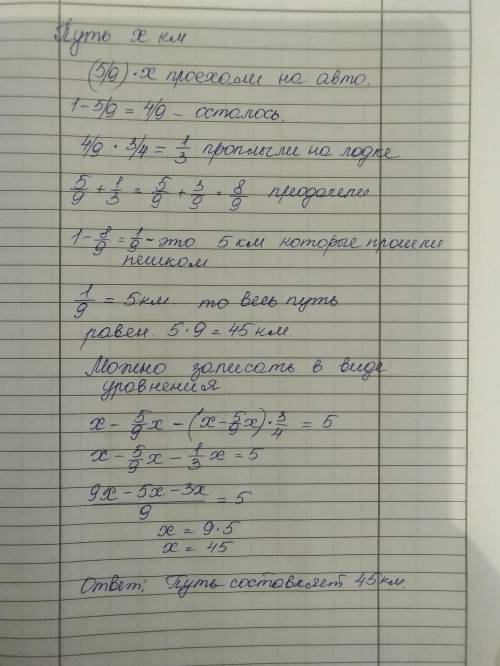 Путь x км
(5/9)·x проехали на авто.
1-5/9 = 4/9 - осталось.
4/9 · 3/4 = 1/3 проплыли на лодке
5/9 + 1/3 = 5/9 + 3/9 = 8/9 преодолели
1 - 8/9 = 1/9 - это 5 км которые прошли
пешком
1/9 = 5км то весь путь
равен. 5·9 = 45 км.
Можно записать в виде
уравнения
x - 5/9x - (x - 5/9x)·3/4 = 5
x - 5/9x - 1/3x = 5
(9x - 5x - 3x)/9 = 5
x = 9·5
x = 45
Ответ: Путь составляет 45 км.